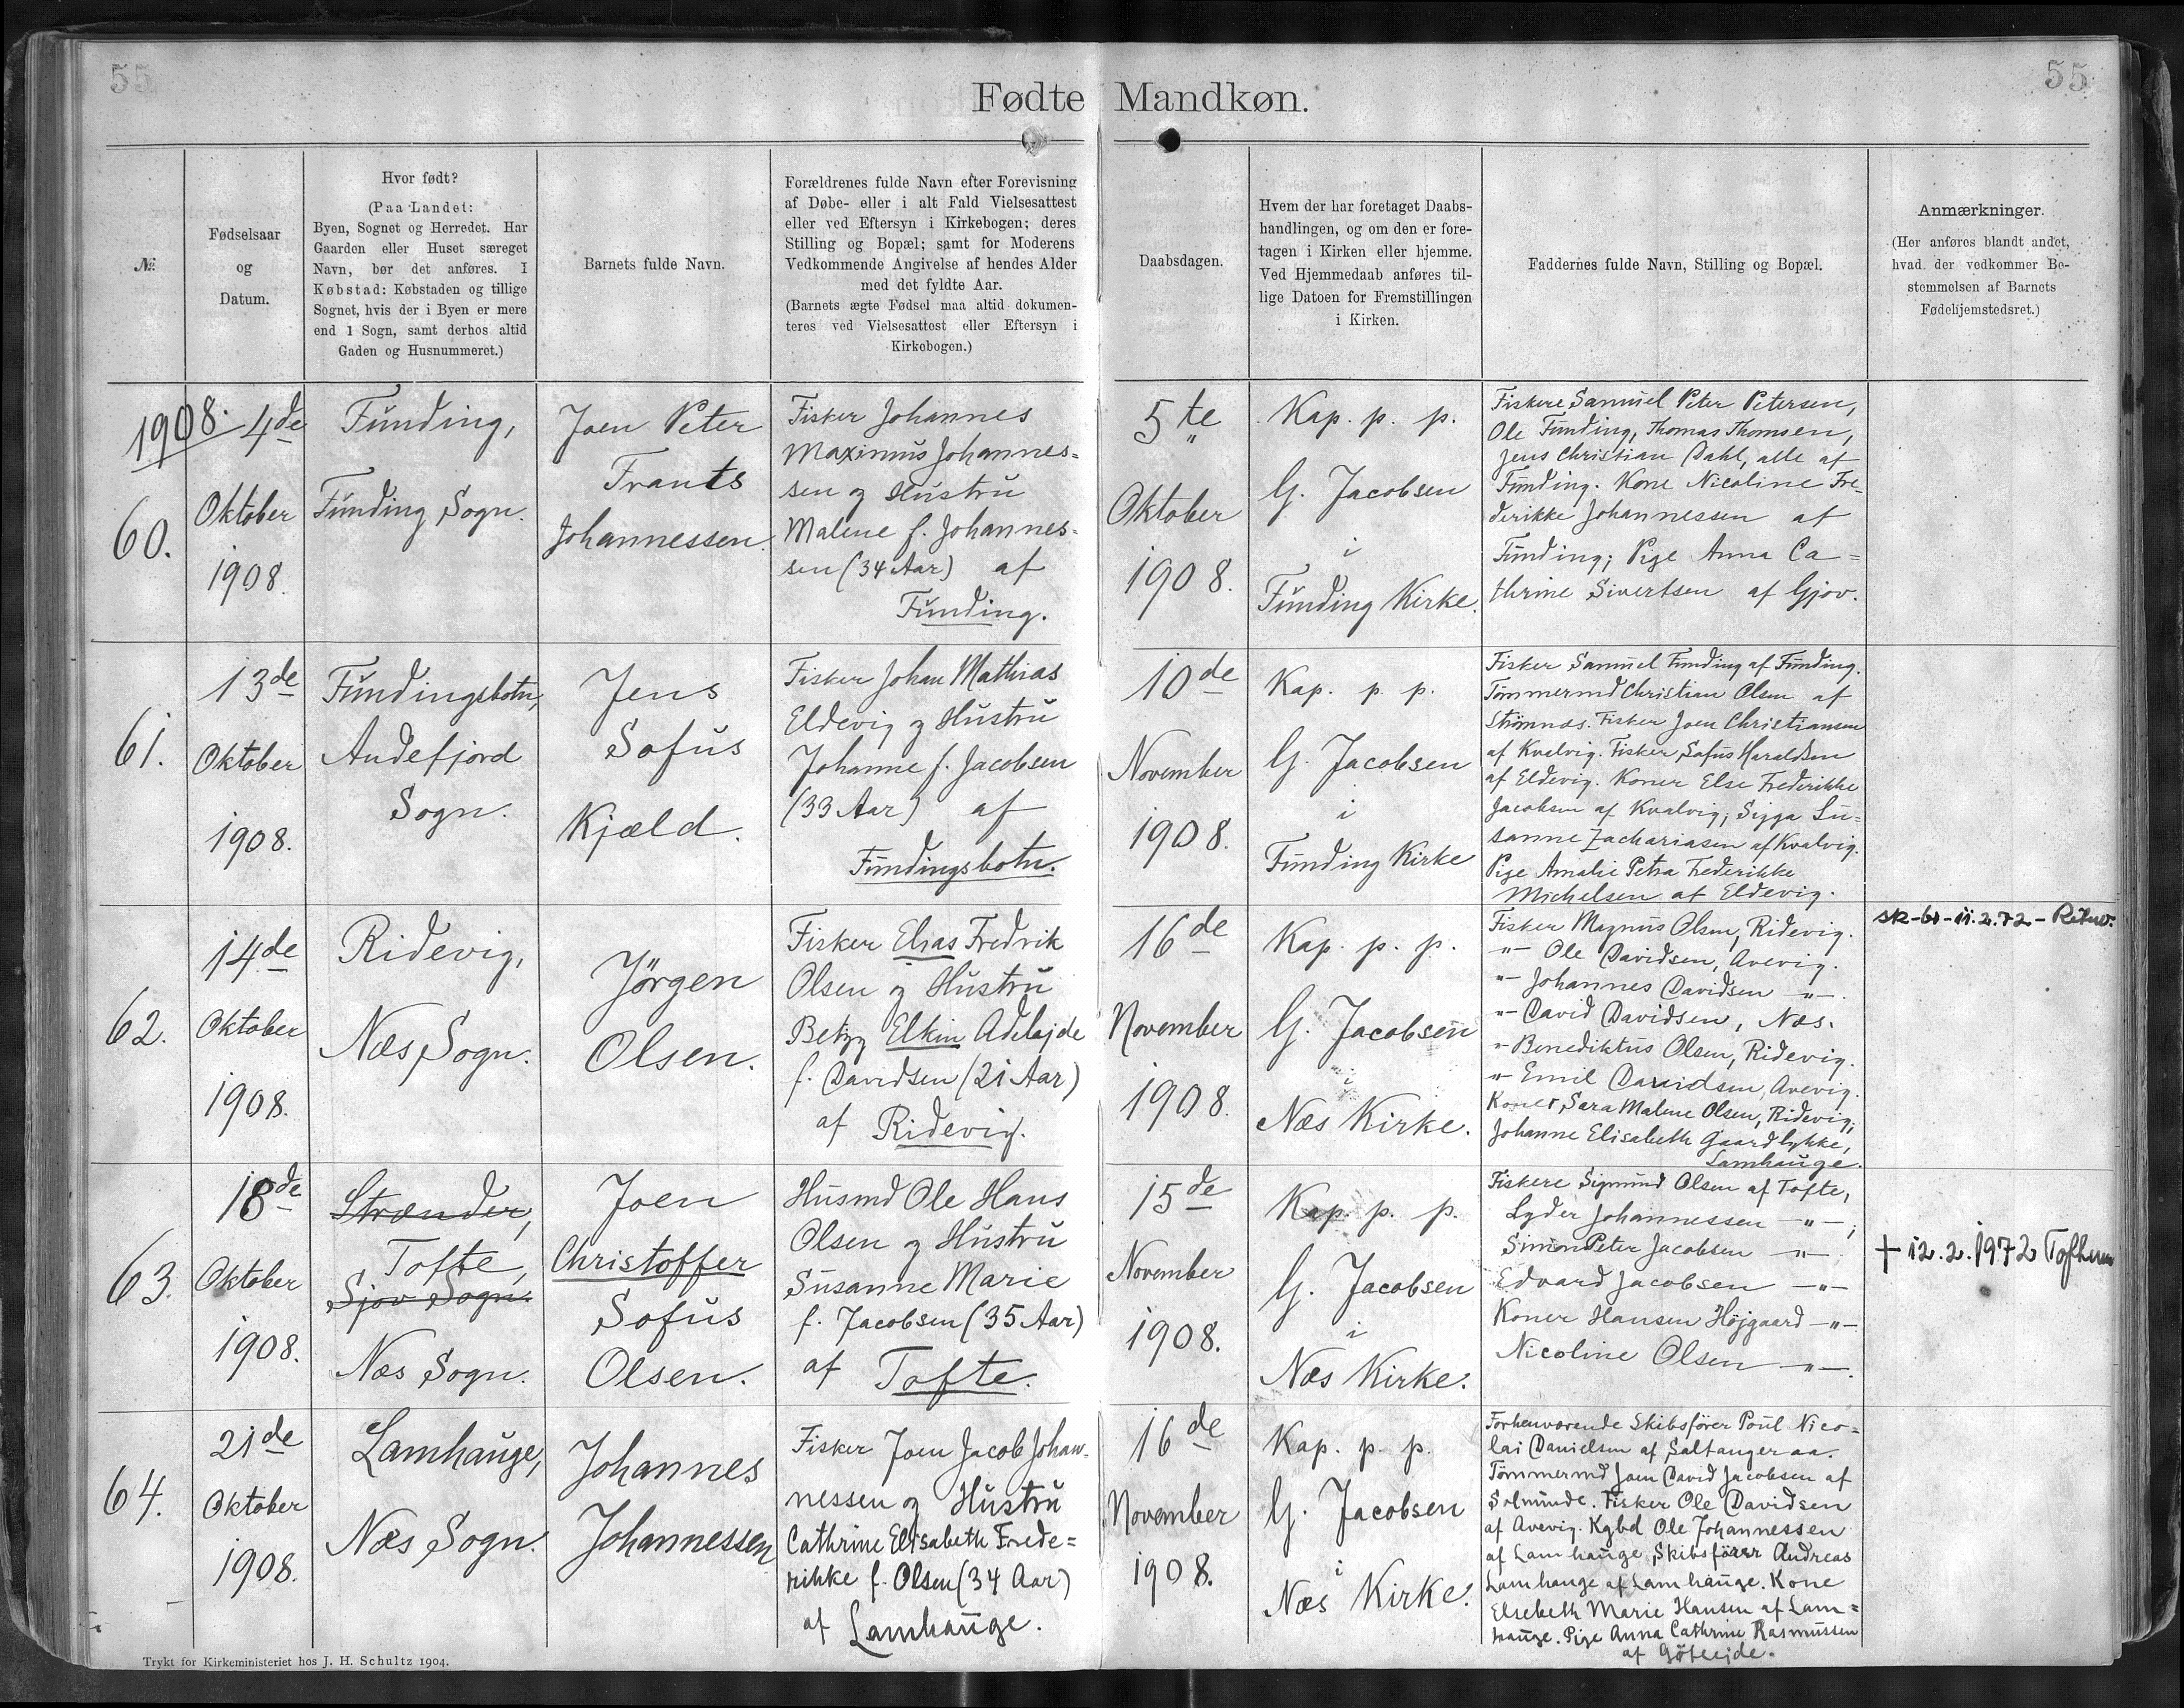 55
55
Fødte Mandkøn.
№
Fødselsaar
og
Datum.
Hvor født?
(Paa Landet:
Byen, Sognet og Herredet. Har
Gaarden eller Huset særeget
Navn, bør det anføres. I
Købstad: Købstaden og tillige
Sognet, hvis der i Byen er mere
end 1 Sogn, samt derhos altid
Gaden og Husnummeret.)
Barnets fulde Navn.
Forældrenes fulde Navn efter Forevisning
af Døbe- eller i alt Fald Vielsesattest
eller ved Eftersyn i Kirkebogen; deres
Stilling og Bopæl; samt for Moderens
Vedkommende Angivelse af hendes Alder
med det fyldte Aar.
(Barnets ægte Fødsel maa altid dokumen-
teres ved Vielsesattest eller Eftersyn i
Kirkebogen.)
Daabsdagen.
Hvem der har foretaget Daabs-
handlingen, og om den er fore-
tagen i Kirken eller hjemme.
Ved Hjemmedaab anføres til-
lige Datoen for Fremstillingen
i Kirken.
Faddernes fulde Navn, Stilling og Bopæl.
Anmærkninger.
(Her anføres blandt andet,
hvad der vedkommer Be-
stemmelsen af Barnets
Fødehjemstedsret.)
1908.
60.
4de
Oktober
1908.
Funding,
Funding Sogn.
Joen Peter
Frants
Johannessen.
Fisker Johannes
Maximus Johannes=
sen og Hustru
Malene f. Johannes=
sen (34 Aar) af
Funding.
5te
Oktober
1908.
Kap. p. p.
G. Jacobsen
i
Funding Kirke.
Fiskere Samuel Peter Petersen,
Ole Funding, Thomas Thomsen,
Jens Christian Dahl, alle af
Funding. Kone Nicoline Fre-
derikke Johannessen af
Funding; Pige Anna Ca=
thrine Sivertsen af Gjov.
61.
13de
Oktober
1908.
Fundingsbotn,
Andefjord
Sogn.
Jens
Sofus
Kjæld.
Fisker Johan Mathias
Eldevig og Hustru
Johanne f. Jacobsen
(33 Aar) af
Fundingsbotn.
10de
November
1908.
Kap. p. p.
G. Jacobsen
i
Funding Kirke
Fisker Samuel Funding af Funding.
Tømmermd Christian Olsen af
Strømnæs. Fisker Joen Christiansen
af Kvalvig. Fisker Sofus Haraldsen
af Eldevig. Koner Else Frederikke
Jacobsen af Kvalvig; Sigga Su=
sanne Zachariasen af Kvalvig.
Pige Amalie Petra Frederikke
Michelsen af Eldevig.
62.
14de
Oktober
1908.
Ridevig,
Næs Sogn.
Jørgen
Olsen.
Fisker Elias Fredrik
Olsen og Hustru
Betzy Elkin Adelajde
f. Davidsen (21 Aar)
af Ridevig.
16de
November
1908.
Kap. p. p.
G. Jacobsen
i
Næs Kirke.
Fisker Magnus Olsen, Ridevig.
"- Ole Davidsen, Avevig.
"- Johannes Davidsen -"-.
"- David Davidsen, Næs.
"- Benediktus Olsen, Ridevig.
"- Emil Davidsen, Avevig.
Koner Sara Malene Olsen, Ridevig;
Johanne Elisabeth Gaardlykke,
Lamhauge.
sk-br-11.2.72-
63.
18de
Oktober
1908.
Strænder,
Tofte,
Sjov Sogn.
Næs Sogn.
Joen
Christoffer
Sofus
Olsen.
Husmd Ole Hans
Olsen og Hustru
Susanne Marie
f. Jacobsen (35 Aar)
af Tofte.
15de
November
1908.
Kap. p. p.
G. Jacobsen
i
Næs Kirke.
Fiskere Sigmund Olsen af Tofte,
Lyder Johannessen -"-;
Simon Peter Jacobsen -"-.
Edvard Jacobsen -"-
Koner Hansen Højgaard -"-
Nicoline Olsen -"-.
† 12.2.1972
64.
21de
Oktober
1908.
Lamhauge,
Næs Sogn.
Johannes
Johannessen
Fisker Joen Jacob Johan-
nessen og Hustru
Cathrine Elisabeth Frede=
rikke f. Olsen (34 Aar)
af Lamhauge.
16de
November
1908.
Kap. p. p.
G. Jacobsen
i
Næs Kirke.
Forhenværende Skibsfører Poul Nico=
lai Danielsen af Saltangeraa.
Tømmermd Joen David Jacobsen af
Solmunde. Fisker Ole Davidsen
af Avevig. Kgbd Ole Johannessen
af Lamhauge, Skibsfører Andreas
Lamhauge af Lamhauge. Kone
Elsebeth Marie Hansen af Lam=
hauge. Pige Anna Cathrine Rasmussen
af Gøteejde.
Trykt for Kirkeministeriet hos J. H. Schultz 1904.